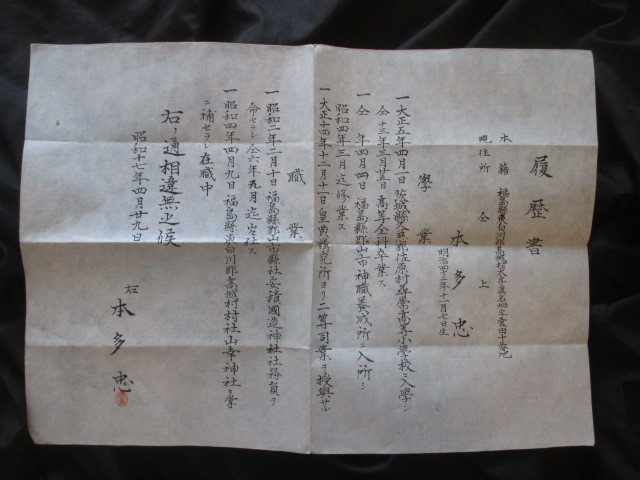 履歴書
本籍 福島縣東白川郡
現住所 仝上
本多忠
明治四十三年十一月七日生
學業
一 大正五年四月一日茨城縣久慈郡佐原村尋常高等小學校ニ入學シ
仝十三年三月廿五日高等全科卒業ス
一 仝 年四月四日 福島縣郡山市神職養成所ニ入所シ
昭和四年三月迄修業ス
一 大正十四年十二月十一日皇典講究所ヨリ二等司業ヲ授與サル
職業
一 昭和二年二月十日福島縣郡山市縣社安積國造神社社務員ヲ
命セラレ仝六年九月迄ス
一 昭和四年四月九日福島縣東白川郡高城村村社山幸神社社掌
ニ補セラレ在職中
右ノ通相違無之候
昭和十一年四月廿九日
右
本多忠